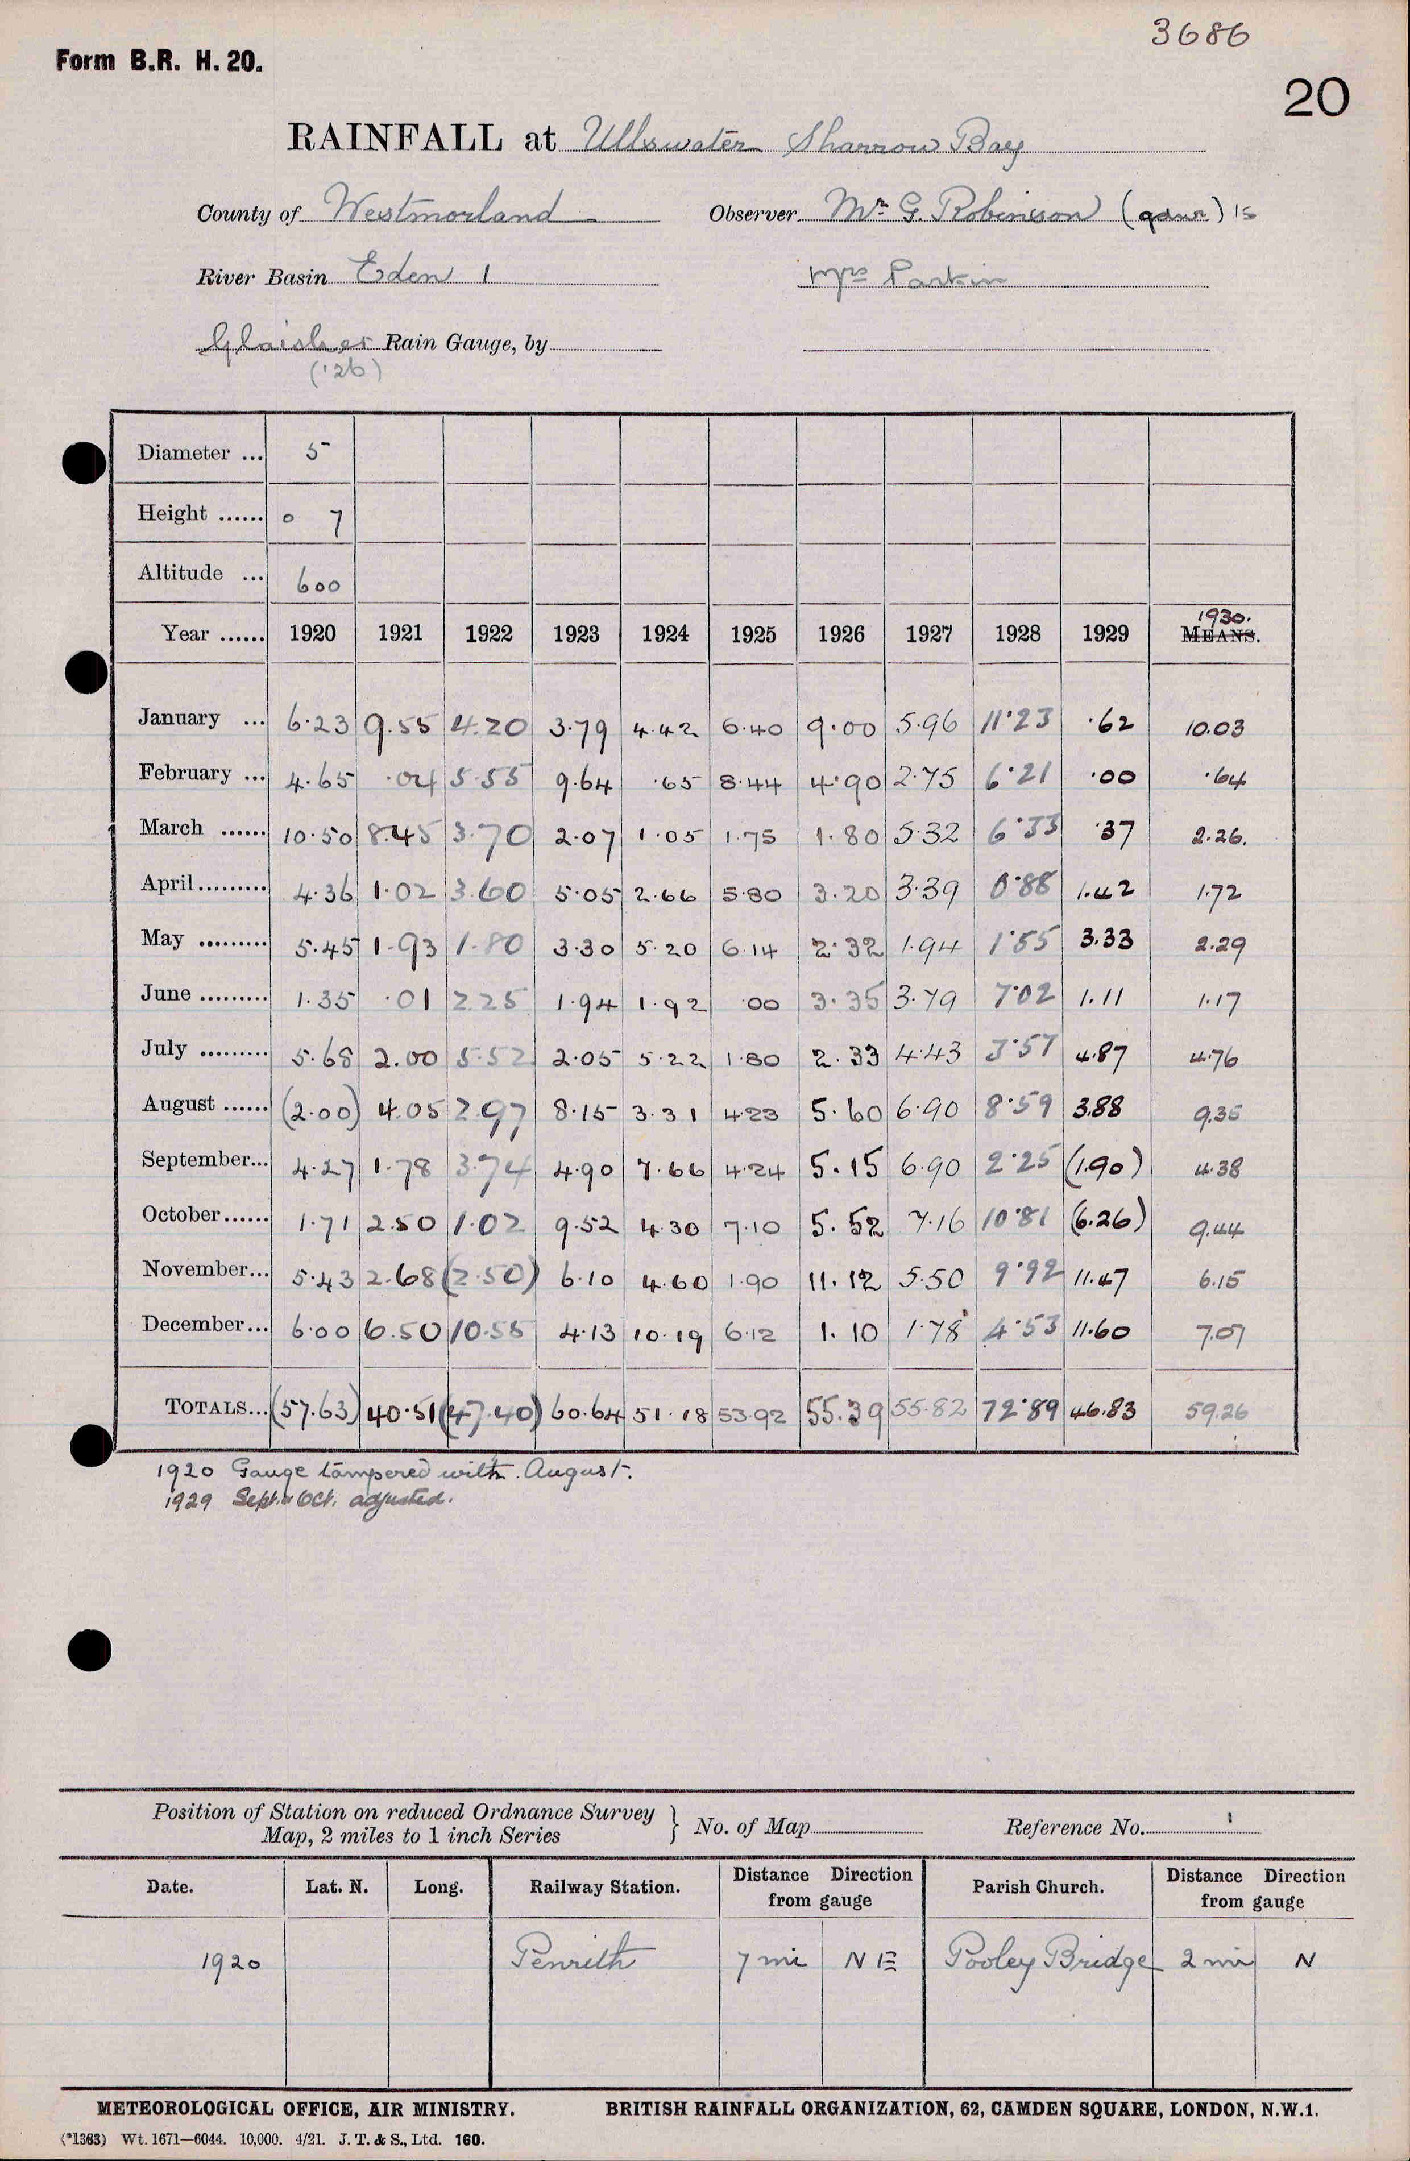 3686
Form B.R. H. 20.
20
RAINFALL at Ullswater Sharrow Bay
County of Westmorland Observer Mr G. Robinson
River Basin Eden 1 Mrs Parkin
Glaisher Rain Gauge, by
('26)
Diameter ... 5
Height ...... 0 7
Altitude ... 600
1930.
Year ...... 1920 1921 1922 1923 1924 1925 1926 1927 1928 1929 MEANS.
January ... 6.23 9.55 4.20 3.79 4.42 6.40 9.00 5.96 11.23 .62 10.03
February ... 4.65 .04 5.55 9.64 .65 8.44 4.90 2.75 6.21 .00 .64
March ...... 10.50 8.45 3.70 2.07 1.05 1.75 1.80 5.32 6.33 .37 2.26.
April ......... 4.36 1.02 3.60 5.05 2.66 5.80 3.20 3.39 0.88 1.42 1.72
May ......... 5.45 1.93 1.80 3.30 5.20 6.14 2.32 1.94 1.55 3.33 2.29
June ......... 1.35 .01 2.25 1.94 1.92 .00 3.35 3.79 7.02 1.11 1.17
July ......... 5.68 2.00 5.52 2.05 5.22 1.80 2.33 4.43 3.57 4.87 4.76
August ...... (2.00) 4.05 2.97 8.15 3.31 4.23 5.60 6.90 8.59 3.88 9.35
September... 4.27 1.78 3.74 4.90 7.66 4.24 5.15 6.90 2.25 (1.90) 4.38
October...... 1.71 2.50 1.02 9.52 4.30 7.10 5.52 7.16 10.81 (6.26) 9.44
November... 5.43 2.68 (2.50) 6.10 4.60 1.90 11.12 5.50 9.92 11.47 6.15
December... 6.00 6.50 10.55 4.13 10.19 6.12 1.10 1.78 4.53 11.60 7.07
TOTALS... (57.63) 40.51 (47.40) 60.64 51.18 53.92 55.39 55.82 72.89 46.83 59.26
1920 Gauge tampered with. August.
1929 Sept. & Oct. adjusted.
Position of Station on reduced Ordnance Survey
Map, 2 miles to 1 inch Series } No. of Map Reference No.
Date. Lat. N. Long. Railway Station. Distance Direction from gauge Parish Church. Distance Direction from gauge
1920 Penrith 7 mi NE Pooley Bridge 2 mi N
METEOROLOGICAL OFFICE, AIR MINISTRY. BRITISH RAINFALL ORGANIZATION, 62, CAMDEN SQUARE, LONDON, N.W.1.
(*1363) Wt. 1671—6044. 10,000. 4/21. J. T. & S., Ltd. 160.